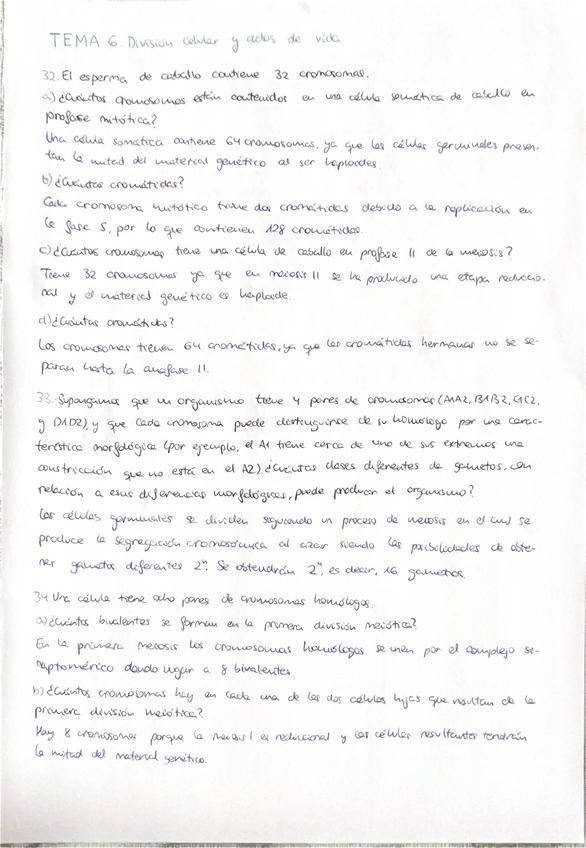 TEMA 6. División celular y ciclos de vida
32. El esperma de caballo contiene 32 cromosomas.
a) ¿Cuántos cromosomas están contenidos en una célula somática de caballo en
profase mitótica?
Una célula somática contiene 64 cromosomas, ya que las células germinales presen-
tan la mitad del material genético al ser haploides.
b) ¿Cuántas cromátidas?
Cada cromosoma mitótico tiene dos cromátidas debido a la replicación en
la fase S, por lo que contienen 128 cromátidas.
c) ¿Cuántos cromosomas tiene una célula de caballo en profase II de la meiosis?
Tiene 32 cromosomas ya que en meiosis II se ha producido una etapa reduccio-
nal y el material genético es haploide.
d) ¿Cuántas cromátidas?
Los cromosomas tienen 64 cromátidas, ya que las cromátidas hermanas no se se-
paran hasta la anafase II.
33.- Supongamos que un organismo tiene 4 pares de cromosomas (A1A2, B1B2, C1C2,
y D1D2), y que cada cromosoma puede distinguirse de su homólogo por una carac-
terística morfológica (por ejemplo, el A1 tiene cerca de uno de sus extremos una
constricción que no está en el A2). ¿Cuántas clases diferentes de gametos, con
relación a esas diferencias morfológicas, puede producir el organismo?
Las células germinales se dividen siguiendo un proceso de meiosis en el cual se
produce la segregación cromosómica al azar siendo las posibilidades de obte-
ner gametos diferentes 2ⁿ. Se obtendrán 2⁴, es decir, 16 gametos.
34. Una célula tiene ocho pares de cromosomas homólogos.
a) ¿Cuántos bivalentes se forman en la primera división meiótica?
En la primera meiosis los cromosomas homólogos se unen por el complejo si-
naptomérico dando lugar a 8 bivalentes.
b) ¿Cuántos cromosomas hay en cada una de las dos células hijas que resultan de la
primera división meiótica?
Hay 8 cromosomas porque la meiosis I es reduccional y las células resultantes tendrán
la mitad del material genético.